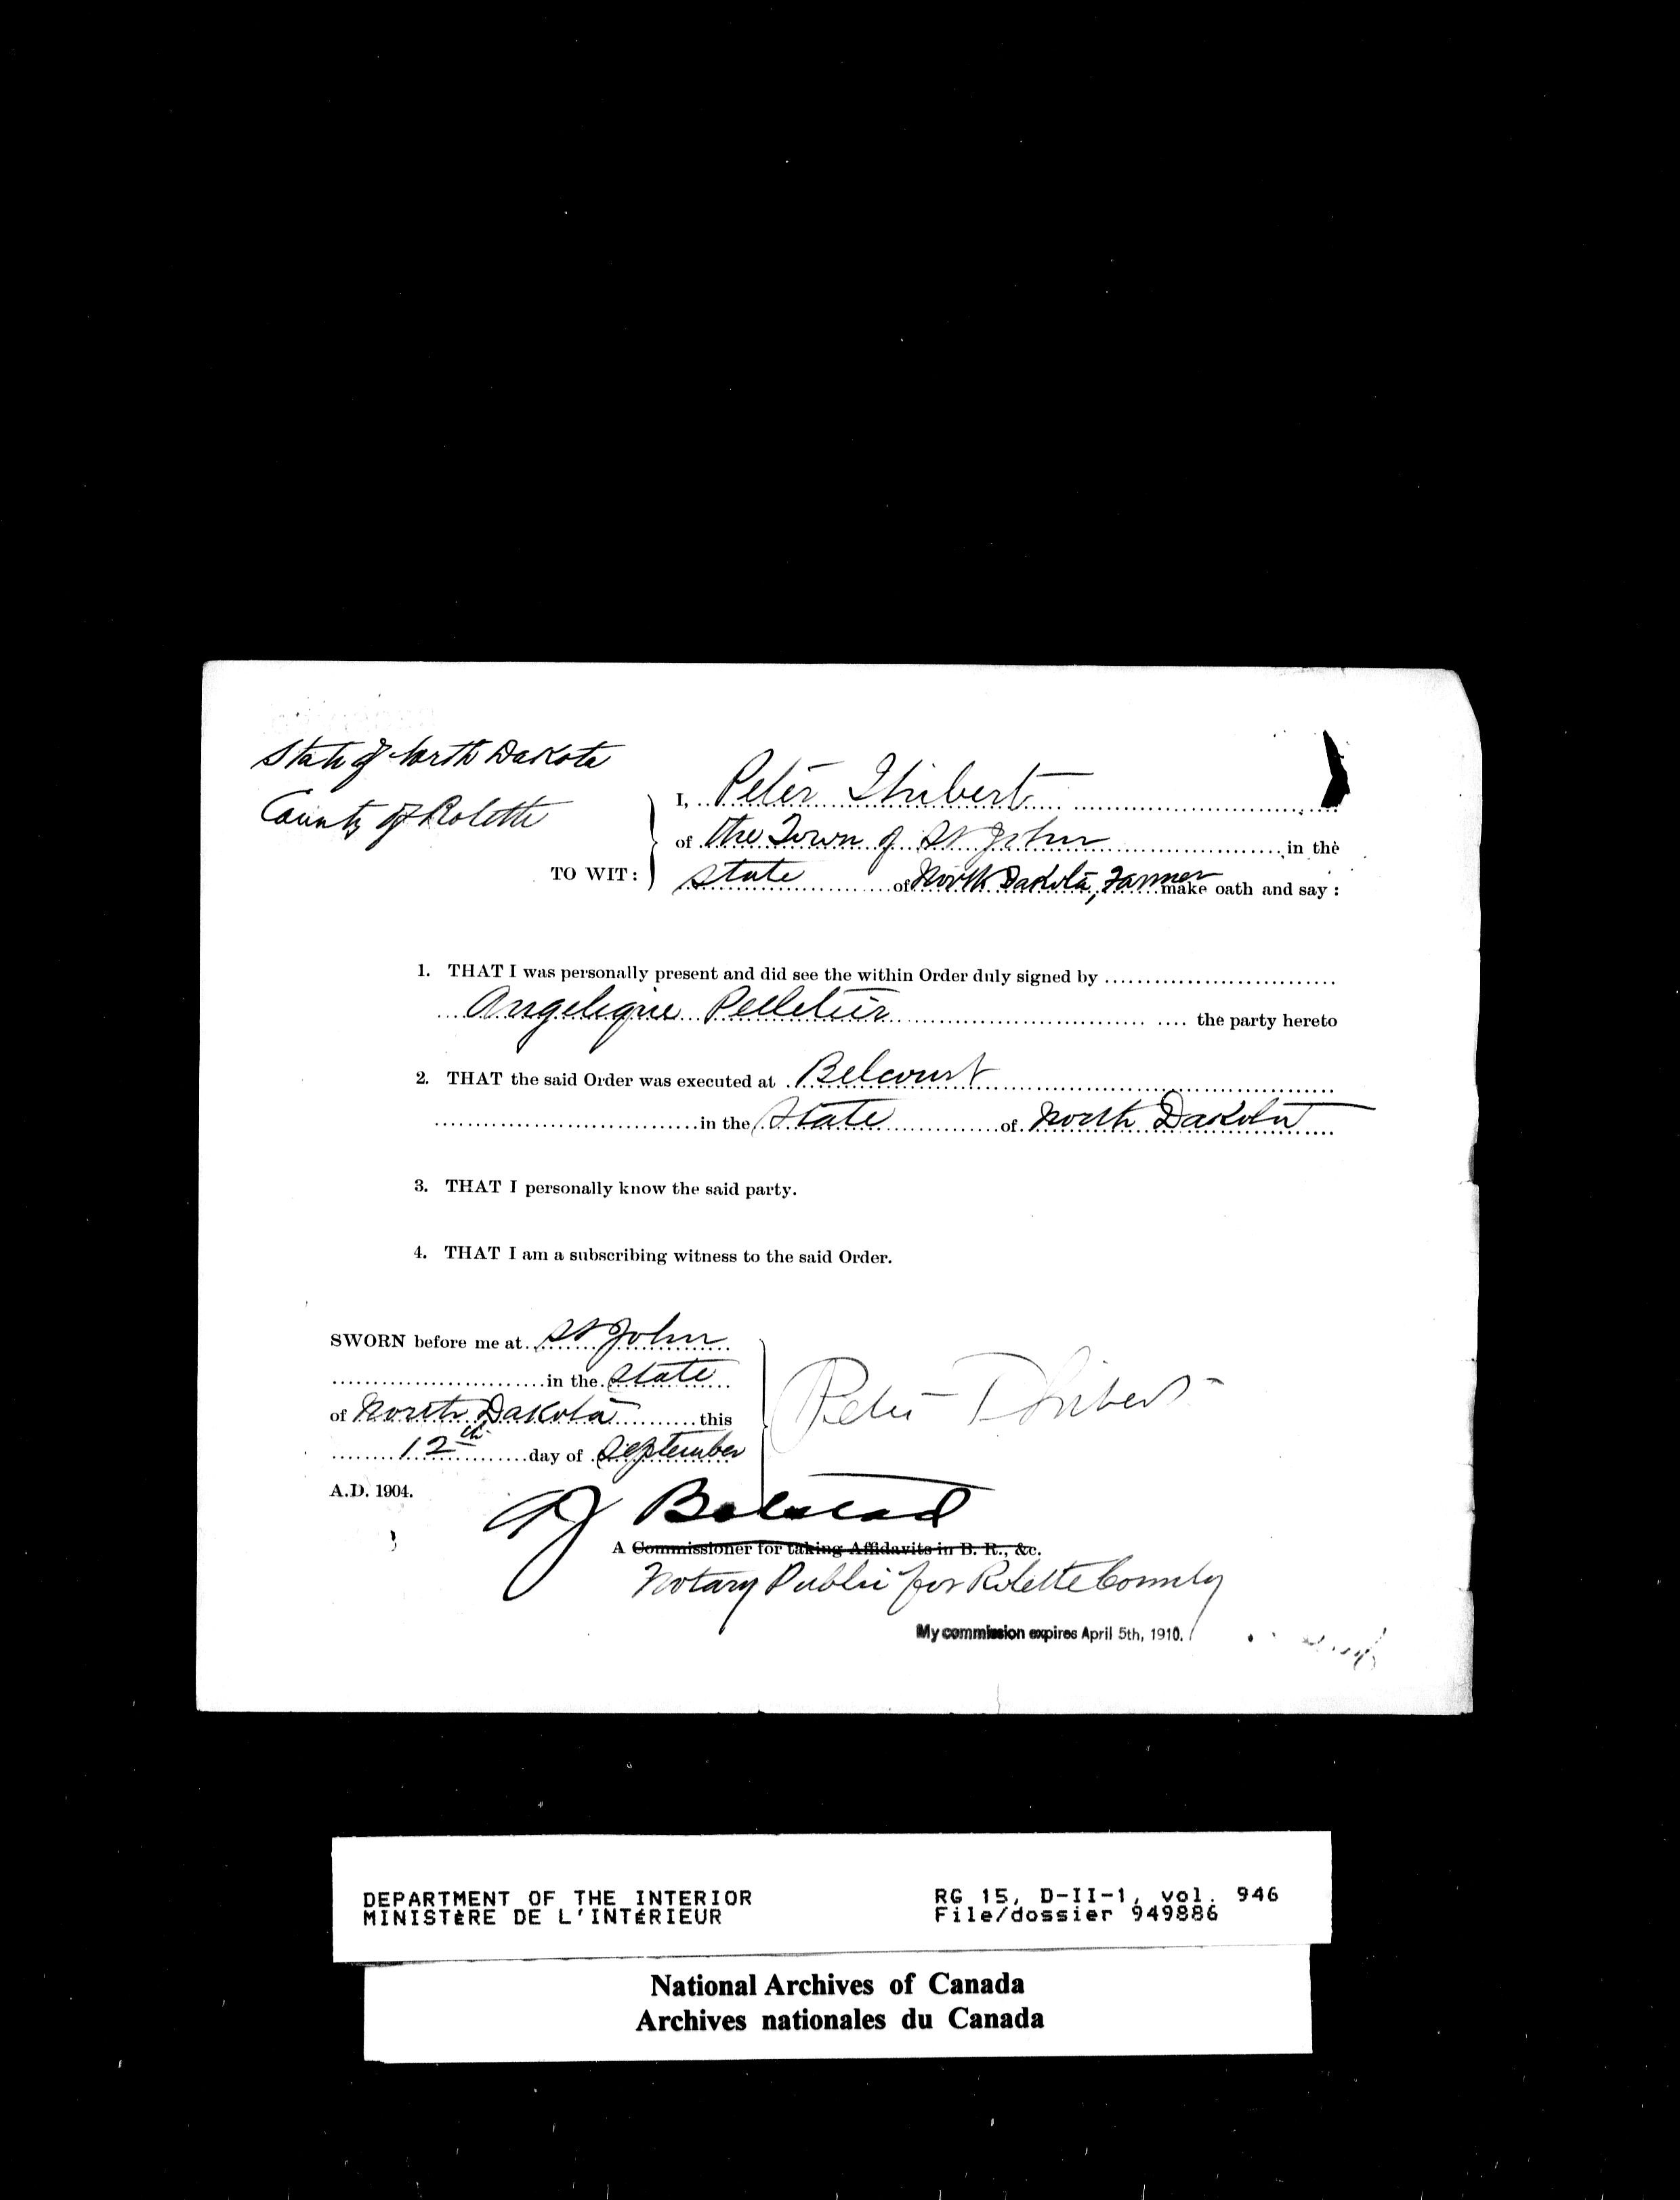 State of North Dakota
County of Rolette
TO WIT:
I, Peter Thibert
of the Town of St John in the
state of North Dakota, Farmer make oath and say:
1. THAT I was personally present and did see the within Order duly signed by
Angelique Pelletier the party hereto
2. THAT the said Order was executed at Belcourt
in the State of North Dakota
3. THAT I personally know the said party.
4. THAT I am a subscribing witness to the said Order.
SWORN before me at St John
in the State
of North Dakota this
12th day of September
A.D. 1904.
Peter Thibert
A Commissioner for taking Affidavits in B. R., &c.
Notary Public for Rolette County
My commission expires April 5th, 1910.
DEPARTMENT OF THE INTERIOR
MINISTÈRE DE L'INTÉRIEUR
RG 15, D-II-1, vol. 946
File/dossier 949886
National Archives of Canada
Archives nationales du Canada